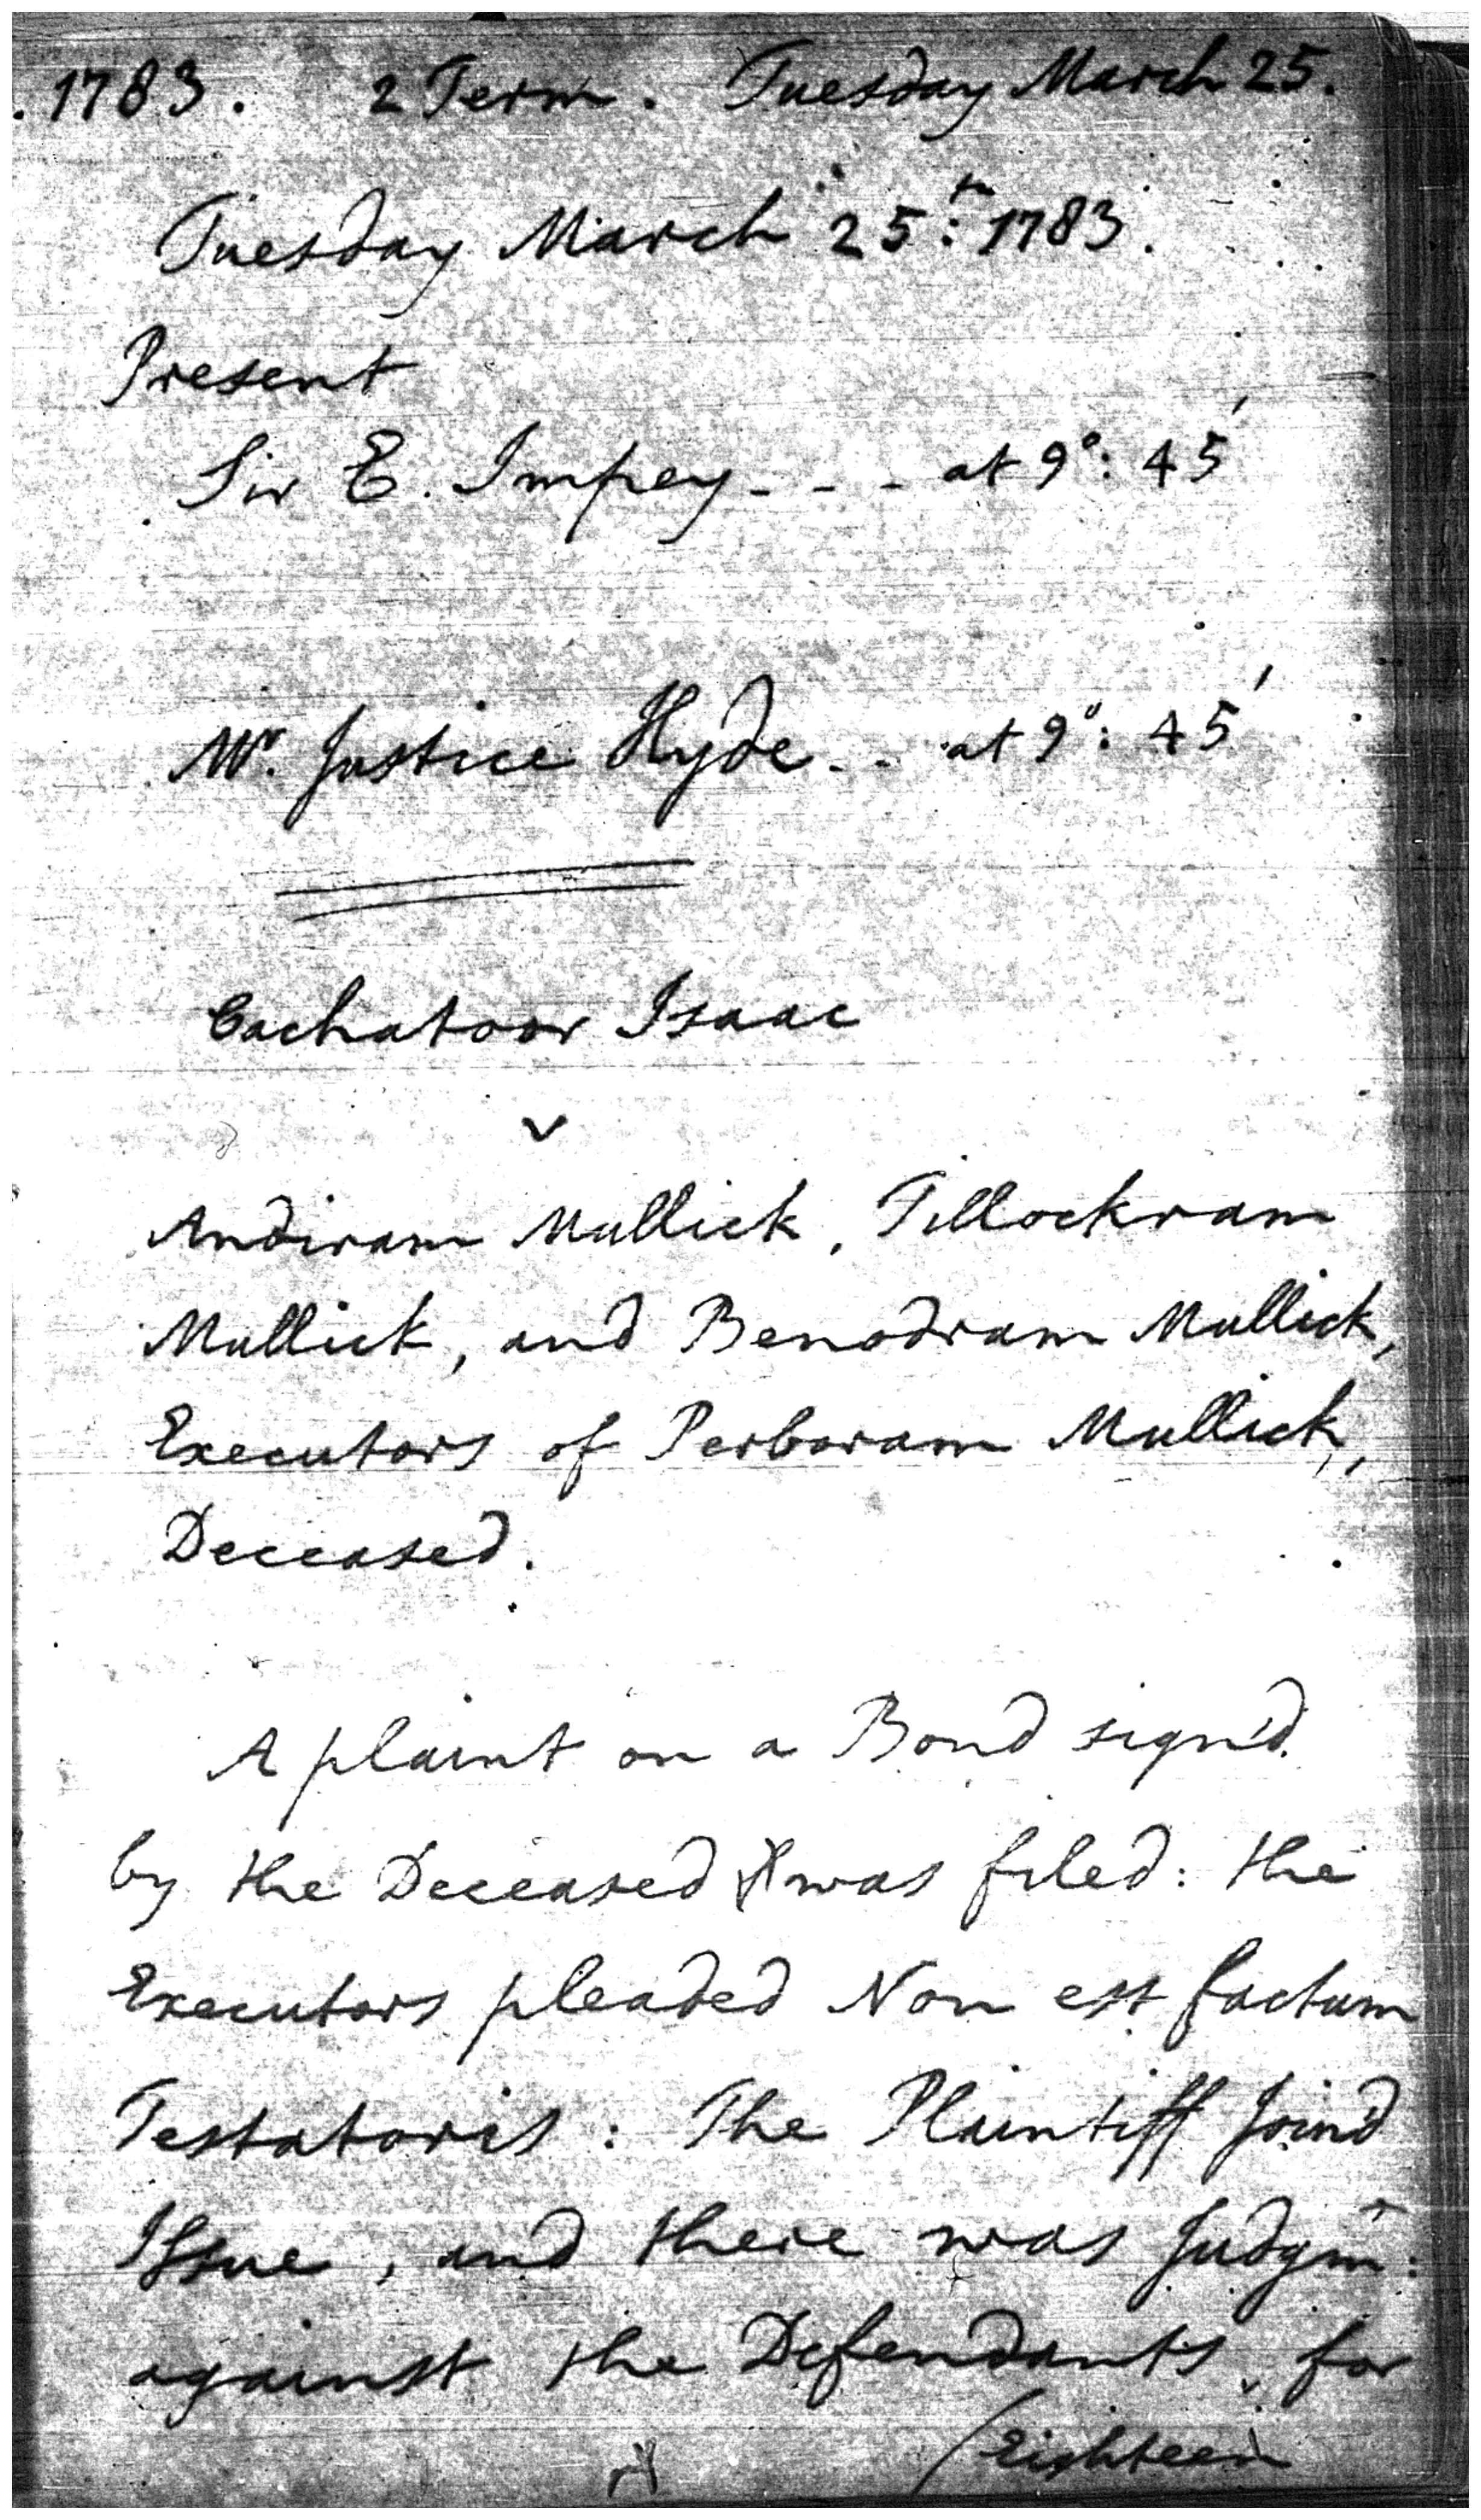 . 1783. 2 Term. Tuesday March 25.
Tuesday March 25:th 1783.
Present
Sir E. Impey - - - at 9°: 45'
Mr. Justice Hyde - - at 9°: 45'
Cachatoor Isaac
v
Andiram Mullick, Tillockram
Mullick, and Benodram Mullick,
Executors of Perboram Mullick,
Deceased.
A plaint on a Bond sign'd
by the Deceased was filed: the
Executors pleaded Non est factum
Testatoris: The Plaintiff join'd
Issue, and there was Judgm̂:
against the Defendants, for
(Eighteen